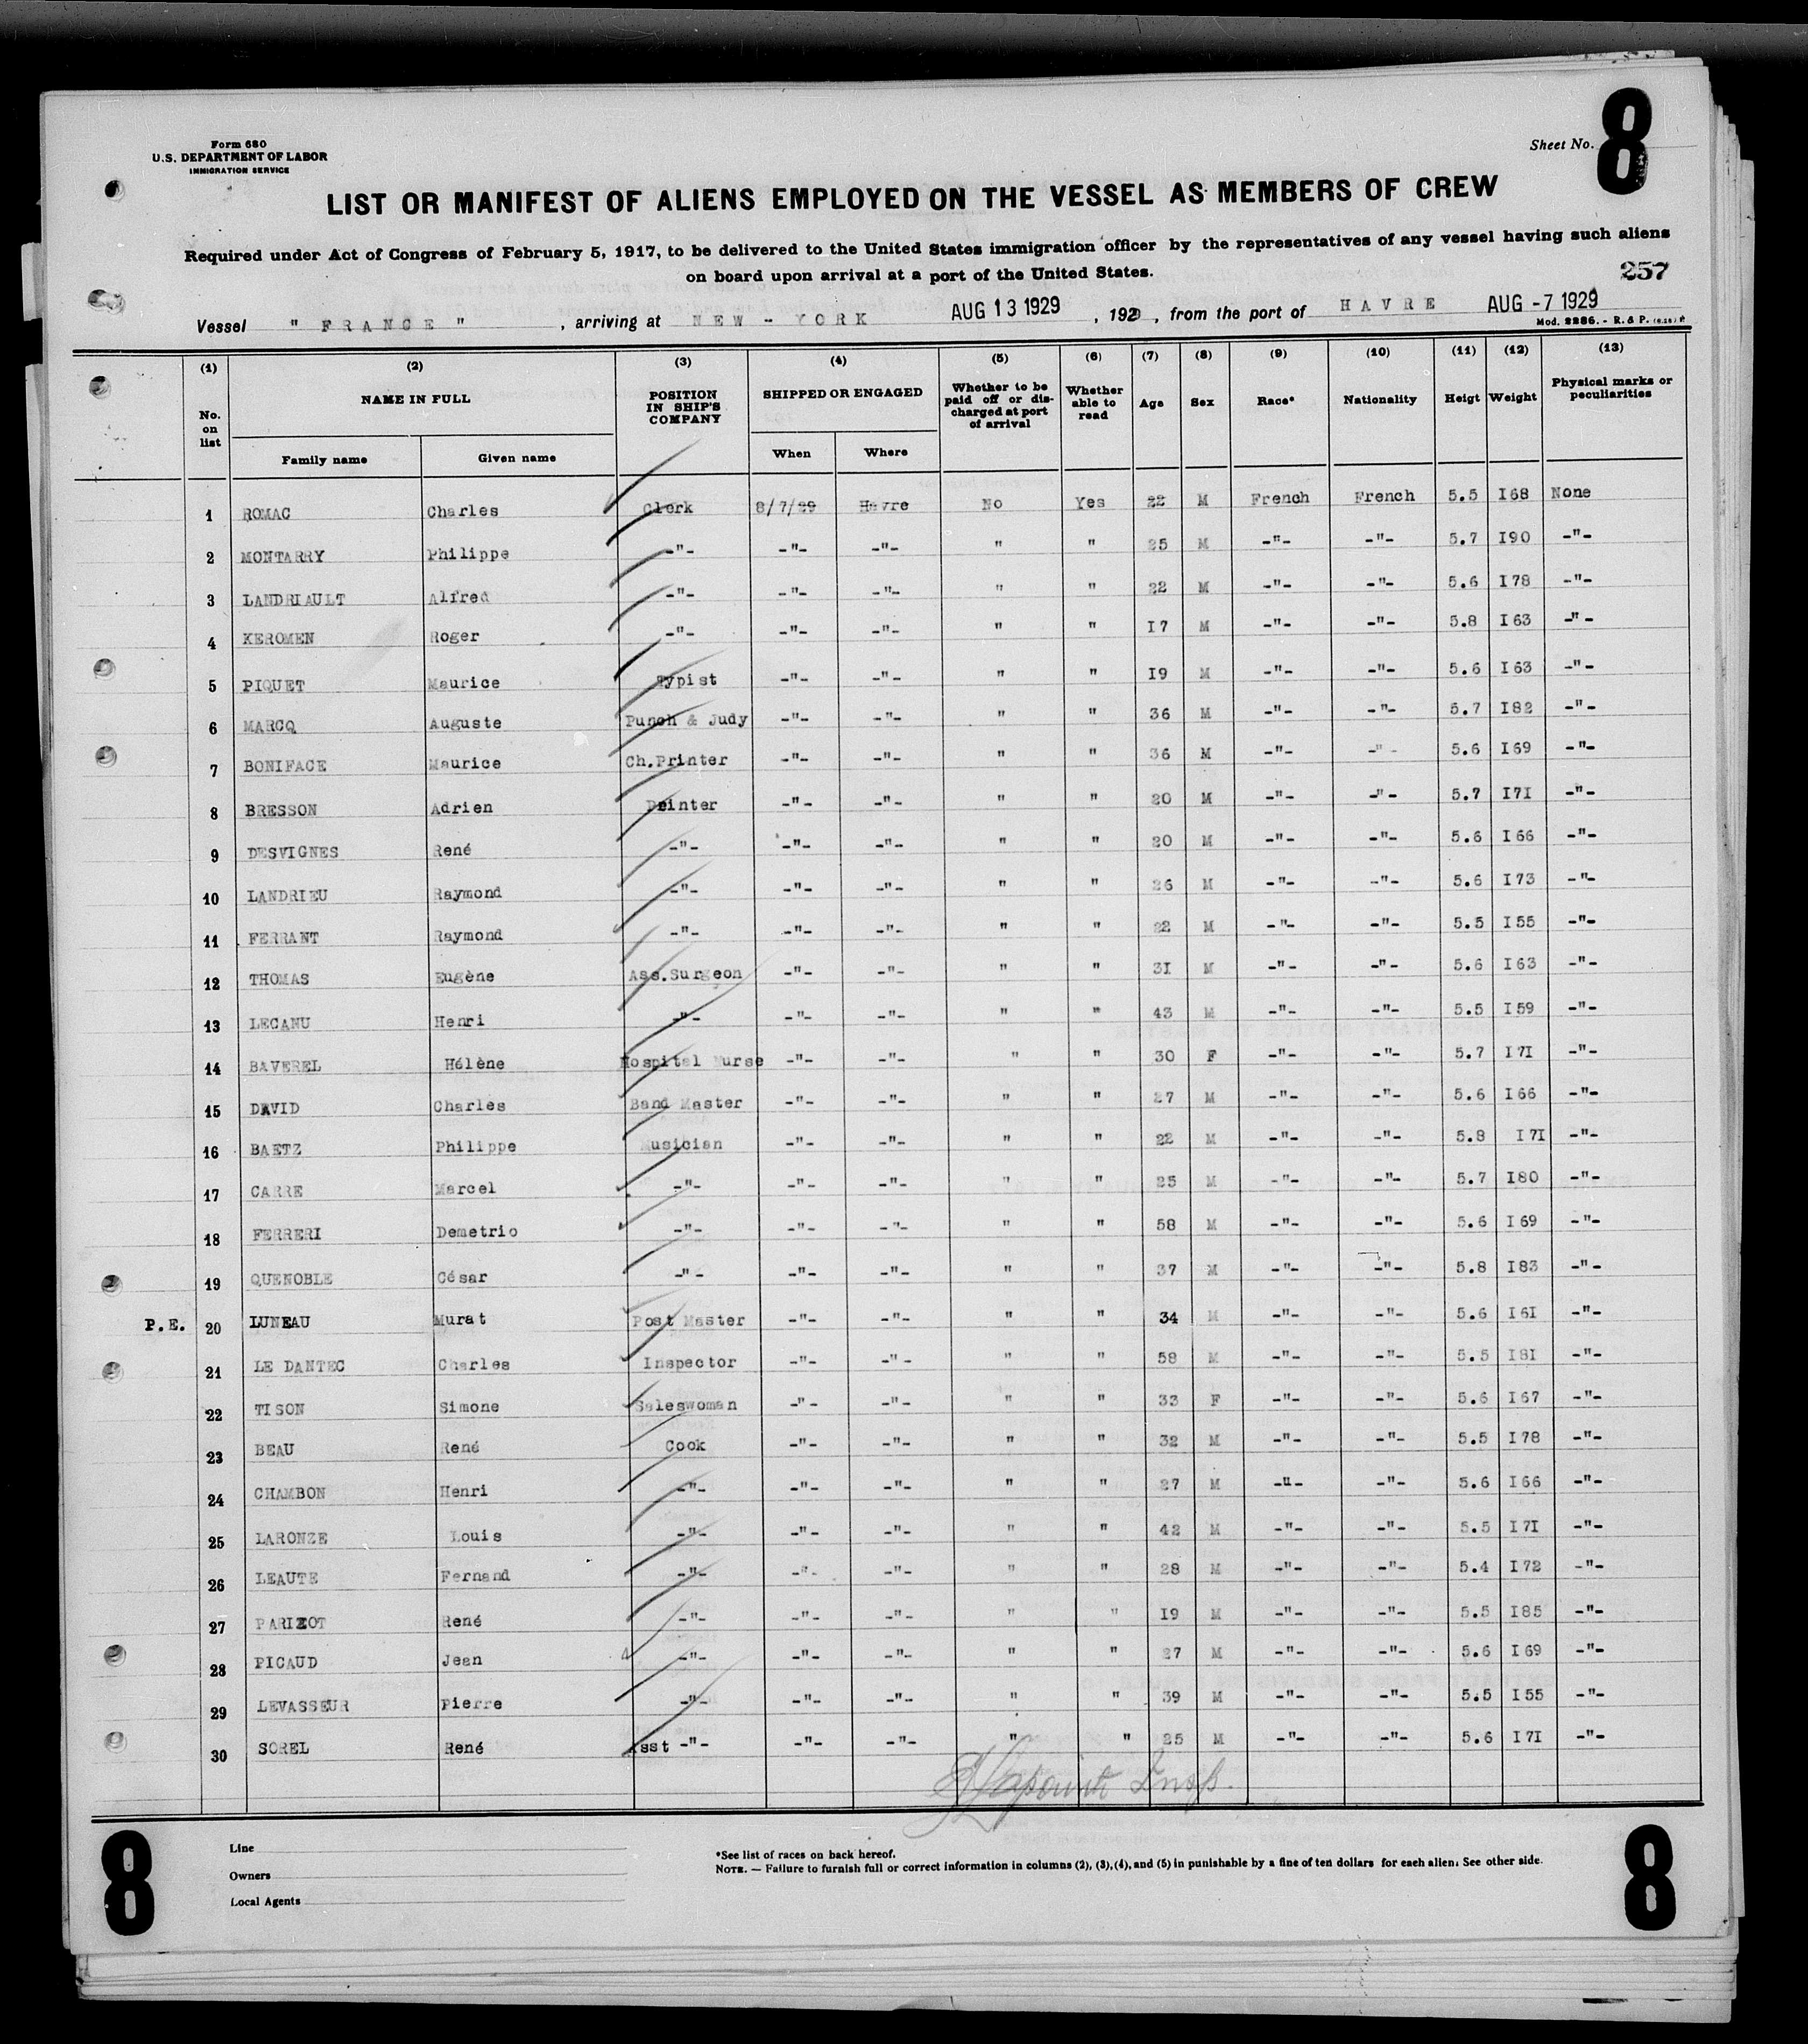 Form 680
U.S. DEPARTMENT OF LABOR
IMMIGRATION SERVICE
Sheet No. 8
LIST OR MANIFEST OF ALIENS EMPLOYED ON THE VESSEL AS MEMBERS OF CREW
Required under Act of Congress of February 5, 1917, to be delivered to the United States immigration officer by the representatives of any vessel having such aliens
on board upon arrival at a port of the United States.
257
Vessel " FRANCE " , arriving at NEW - YORK AUG 13 1929 , 192 , from the port of HAVRE AUG -7 1929
Mod. 2286. - R. & P.
(1) (2) (3) (4) (5) (6) (7) (8) (9) (10) (11) (12) (13)
No. on list NAME IN FULL POSITION IN SHIP'S COMPANY SHIPPED OR ENGAGED Whether to be paid off or discharged at port of arrival Whether able to read Age Sex Race* Nationality Heigt Weight Physical marks or peculiarities
Family name Given name When Where
1 ROMAC Charles Clerk 8/7/29 Havre No Yes 22 M French French 5.5 I68 None
2 MONTARRY Philippe -"- -"- -"- " " 25 M -"- -"- 5.7 I90 -"-
3 LANDRIAULT Alfred -"- -"- -"- " " 22 M -"- -"- 5.6 I78 -"-
4 KEROMEN Roger -"- -"- -"- " " I7 M -"- -"- 5.8 I63 -"-
5 PIQUET Maurice Typist -"- -"- " " I9 M -"- -"- 5.6 I63 -"-
6 MARCQ Auguste Punch & Judy -"- -"- " " 36 M -"- -"- 5.7 I82 -"-
7 BONIFACE Maurice Ch.Printer -"- -"- " " 36 M -"- -"- 5.6 I69 -"-
8 BRESSON Adrien Printer -"- -"- " " 20 M -"- -"- 5.7 I7I -"-
9 DESVIGNES René -"- -"- -"- " " 20 M -"- -"- 5.6 I66 -"-
10 LANDRIEU Raymond -"- -"- -"- " " 26 M -"- -"- 5.6 I73 -"-
11 FERRANT Raymond -"- -"- -"- " " 22 M -"- -"- 5.5 I55 -"-
12 THOMAS Eugène Ass.Surgeon -"- -"- " " 3I M -"- -"- 5.6 I63 -"-
13 LECANU Henri -"- -"- -"- " " 43 M -"- -"- 5.5 I59 -"-
14 BAVEREL Hélène Hospital Nurse -"- -"- " " 30 F -"- -"- 5.7 I7I -"-
15 DAVID Charles Band Master -"- -"- " " 27 M -"- -"- 5.6 I66 -"-
16 BAETZ Philippe Musician -"- -"- " " 22 M -"- -"- 5.8 I7I -"-
17 CARRE Marcel -"- -"- -"- " " 25 M -"- -"- 5.7 I80 -"-
18 FERRERI Demetrio -"- -"- -"- " " 58 M -"- -"- 5.6 I69 -"-
19 QUENOBLE César -"- -"- -"- " " 37 M -"- -"- 5.8 I83 -"-
P.E. 20 LUNEAU Murat Post Master -"- -"- " " 34 M -"- -"- 5.6 I6I -"-
21 LE DANTEC Charles Inspector -"- -"- " " 58 M -"- -"- 5.5 I8I -"-
22 TISON Simone Saleswoman -"- -"- " " 33 F -"- -"- 5.6 I67 -"-
23 BEAU René Cook -"- -"- " " 32 M -"- -"- 5.5 I78 -"-
24 CHAMBON Henri -"- -"- -"- " " 27 M -"- -"- 5.6 I66 -"-
25 LARONZE Louis -"- -"- -"- " " 42 M -"- -"- 5.5 I7I -"-
26 LEAUTE Fernand -"- -"- -"- " " 28 M -"- -"- 5.4 I72 -"-
27 PARIZOT René -"- -"- -"- " " I9 M -"- -"- 5.5 I85 -"-
28 PICAUD Jean -"- -"- -"- " " 27 M -"- -"- 5.6 I69 -"-
29 LEVASSEUR Pierre -"- -"- -"- " " 39 M -"- -"- 5.5 I55 -"-
30 SOREL René Asst -"- -"- -"- " " 25 M -"- -"- 5.6 I7I -"-
Line
Owners
Local Agents
*See list of races on back hereof.
NOTE. — Failure to furnish full or correct information in columns (2), (3), (4), and (5) in punishable by a fine of ten dollars for each alien. See other side.
8 8